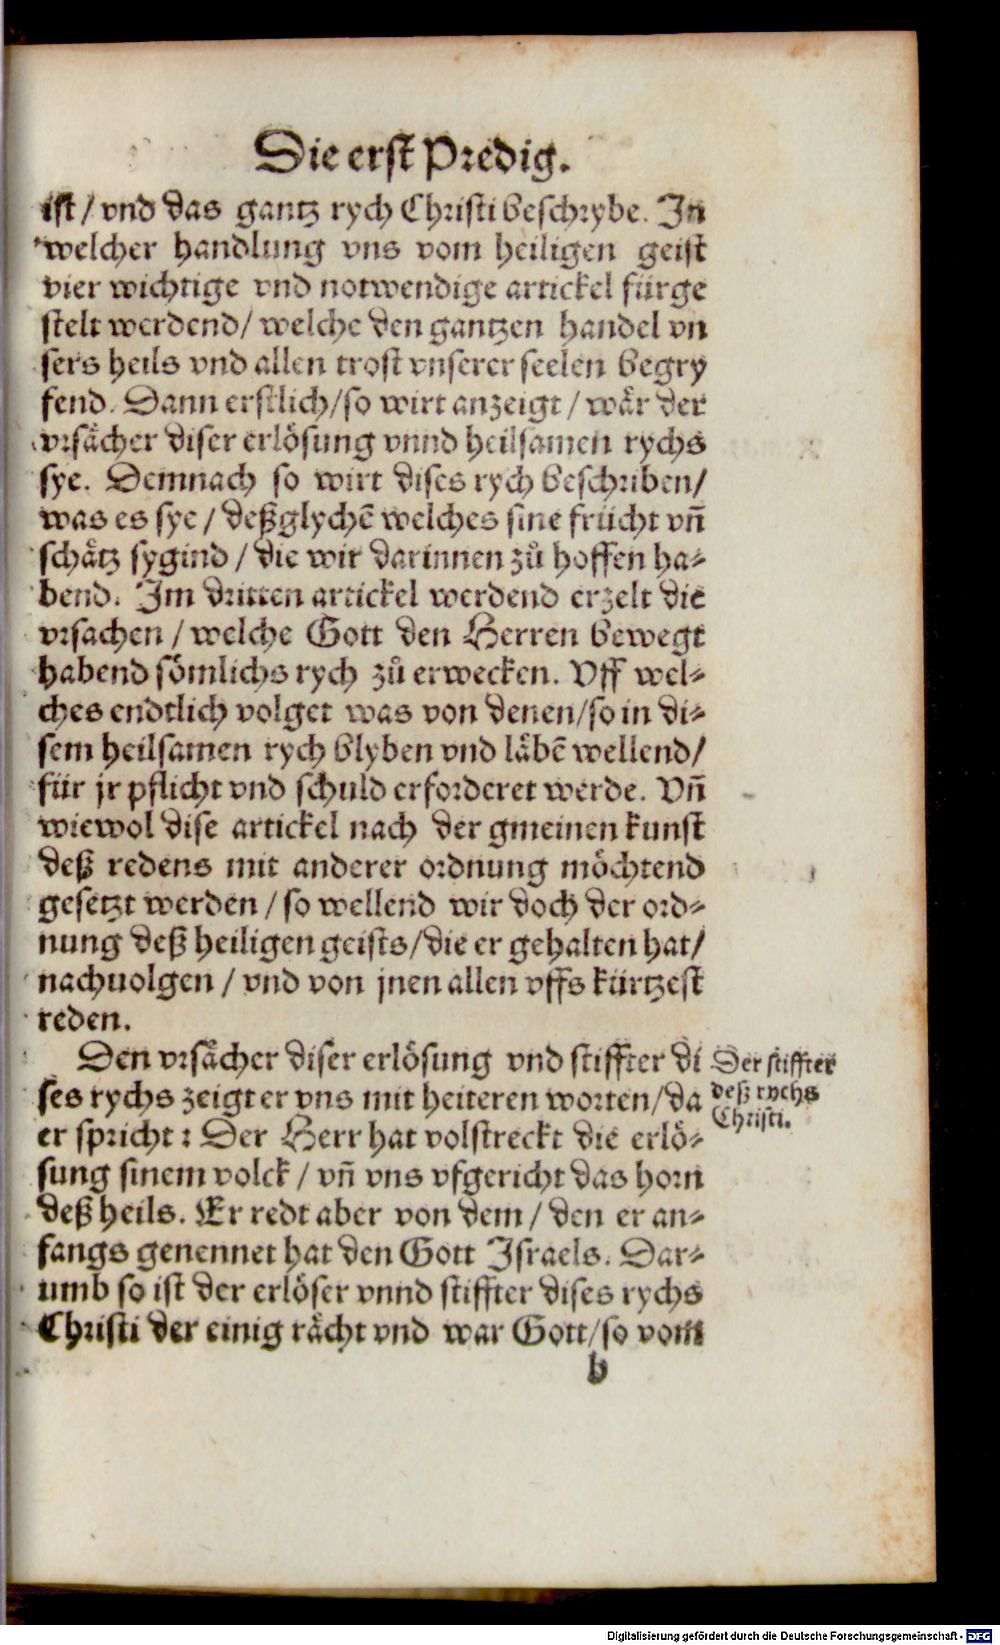 Die erst Predig.
ist / vnd das gantz rych Christi beschrybe. In
welcher handlung vns vom heiligen geist
vier wichtige vnd notwendige artickel fürge
stelt werdend/ welche den gantzen handel vn
sers heils vnd allen trost vnserer seelen begry
fend. Dann erstlich/so wirt anzeigt / wär der
vrsächer diser erlösung vnnd heilsamen rychs
sye. Demnach so wirt dises rych beschriben/
was es sye / deßglychē welches sine frücht vñ
schätz sygind / die wir darinnen zů hoffen ha⸗
bend. Im dritten artickel werdend erzelt die
vrsachen / welche Gott den Herren bewegt
habend sömlichs rych zů erwecken. Vff wel⸗
ches endtlich volget was von denen/so in di⸗
sem heilsamen rych blyben vnd läbē wellend/
für jr pflicht vnd schuld erforderet werde. Vñ
wiewol dise artickel nach der gmeinen kunst
deß redens mit anderer ordnung möchtend
gesetzt werden / so wellend wir doch der ord⸗
nung deß heiligen geists/die er gehalten hat/
nachuolgen / vnd von jnen allen vffs kürtzest
reden.
Den vrsächer diser erlösung vnd stiffter di
ses rychs zeigt er vns mit heiteren worten/da
er spricht: Der Herr hat volstreckt die erlö⸗
sung sinem volck / vñ vns vfgericht das horn
deß heils. Er redt aber von dem / den er an⸗
fangs genennet hat den Gott Israels. Dar⸗
umb so ist der erlöser vnnd stiffter dises rychs
Christi der einig rächt vnd war Gott/so vom
b
Der stiffter
deß rychs
Christi.
Digitalisierung gefördert durch die Deutsche Forschungsgemeinschaft - DFG